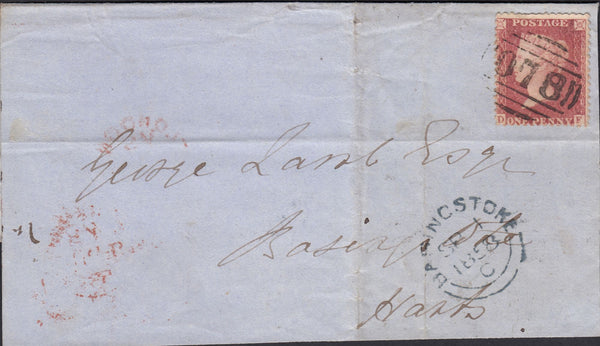 POSTAGE
078
D ONE PENNY F
George Lamb Esqr
Basingstoke
Hants
BASINGSTOKE